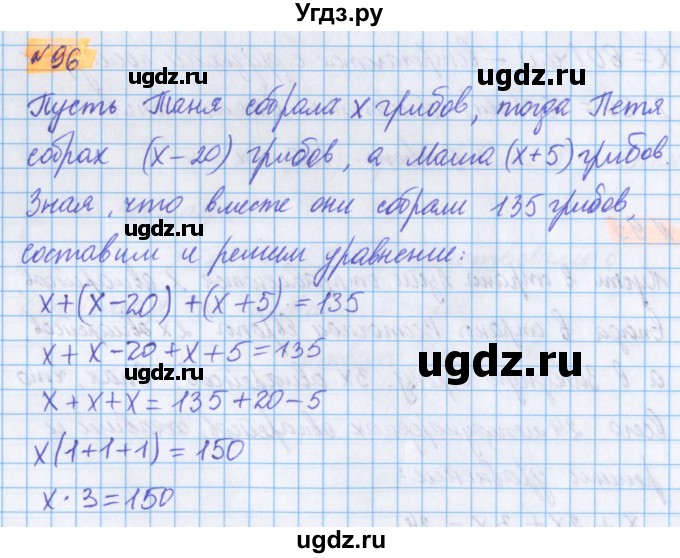 Угдз.ру
№96
Пусть Таня собрала x грибов, тогда Петя
собрал (x-20) грибов, а Маша (x+5) грибов.
Зная, что вместе они собрали 135 грибов,
составим и решим уравнение:
x+(x-20)+(x+5)=135
x+x-20+x+5=135
x+x+x=135+20-5
x(1+1+1)=150
x·3=150
ugdz.ru
ugdz.ru
ugdz.ru
ugdz.ru
ugdz.ru
ugdz.ru
ugdz.ru
ugdz.ru
ugdz.ru
ugdz.ru
ugdz.ru
ugdz.ru